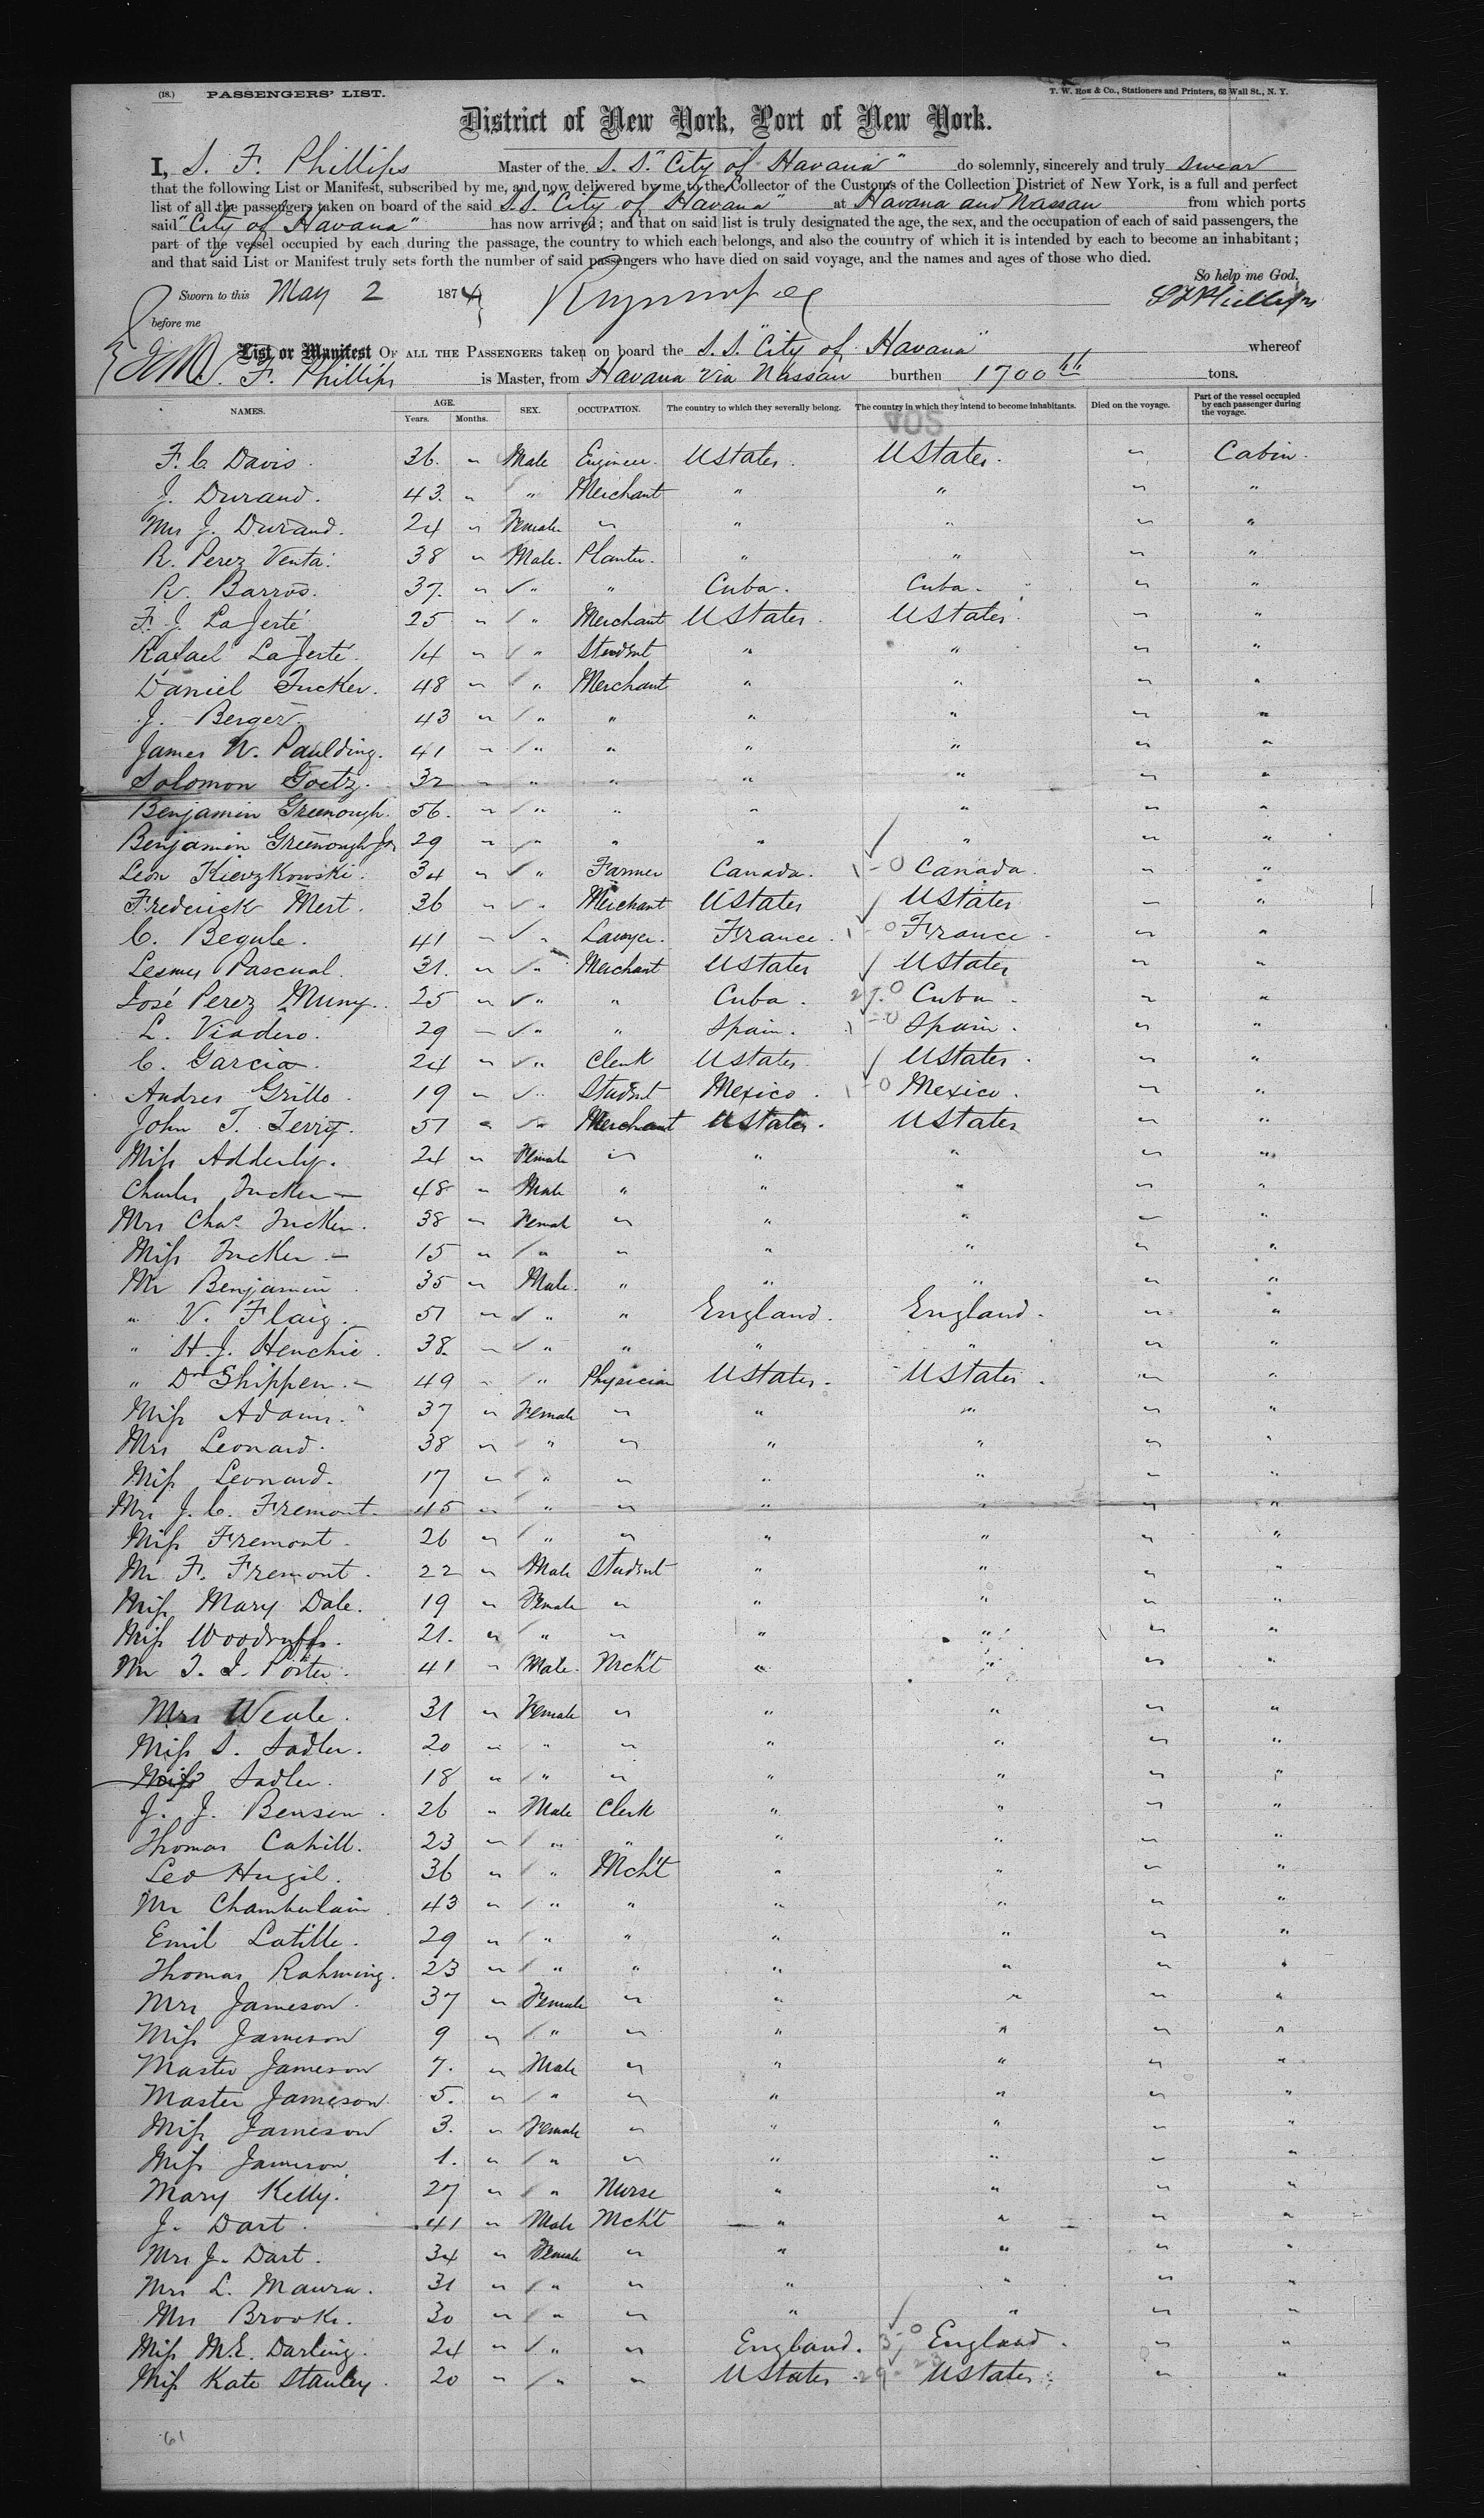 (18.) PASSENGERS' LIST. T. W. Roe & Co., Stationers and Printers, 63 Wall St., N. Y.
District of New York, Port of New York.
I, S. F. Phillips Master of the S. S. "City of Havana" do solemnly, sincerely and truly swear
that the following List or Manifest, subscribed by me, and now delivered by me to the Collector of the Customs of the Collection District of New York, is a full and perfect
list of all the passengers taken on board of the said S.S. "City of Havana" at Havana and Nassau from which ports
said "City of Havana" has now arrived; and that on said list is truly designated the age, the sex, and the occupation of each of said passengers, the
part of the vessel occupied by each during the passage, the country to which each belongs, and also the country of which it is intended by each to become an inhabitant;
and that said List or Manifest truly sets forth the number of said passengers who have died on said voyage, and the names and ages of those who died.
So help me God.
Sworn to this May 2 1874 S F Phillips
before me
List or Manifest OF ALL THE PASSENGERS taken on board the S.S. "City of Havana" whereof
S. F. Phillips is Master, from Havana via Nassau burthen 1700 tons.
NAMES. AGE. Years. Months. SEX. OCCUPATION. The country to which they severally belong. The country in which they intend to become inhabitants. Died on the voyage. Part of the vessel occupied by each passenger during the voyage.
F. C. Davis. 36. " Male Engineer. UStates. UStates. " Cabin.
J. Durand. 43. " " Merchant " " " "
Mrs J. Durand. 24 " Female " " " " "
R. Perez Venta. 38 " Male. Planter. " " " "
R. Barros. 37. " " " Cuba. Cuba. " "
F. J. LaFerté 25 " " Merchant UStates. UStates. " "
Rafael LaFerté. 14 " " Student " " " "
Daniel Tucker. 48 " " Merchant " " " "
J. Berger. 43 " " " " " " "
James N. Paulding. 41 " " " " " " "
Solomon Goetz. 32 " " " " " " "
Benjamin Greenough. 56. " " " " " " "
Benjamin Greenough Jr 29 " " " " " " "
Leon Kierzkowski. 34 " " Farmer Canada. 1-0 Canada. " "
Frederick Mert. 36 " " Merchant UStates UStates " "
C. Begule. 41 " " Lawyer. France. 1-0 France. " "
Lesmes Pascual. 31. " " Merchant UStates UStates " "
José Perez Muny. 25 " " " Cuba. 2-0 Cuba. " "
L. Viadero. 29 " " " Spain. 1-0 Spain. " "
C. Garcia. 24 " " Clerk UStates. UStates. " "
Andres Grillo. 19 " " Student Mexico. 1-0 Mexico. " "
John T. Terry. 51 " " Merchant UStates. UStates " "
Miss Adderly. 24 " Female " " " " "
Charles Tucker 48 " Male " " " " "
Mrs Chas. Tucker. 38 " Female " " " " "
Miss Tucker 15 " " " " " " "
Mr Benjamin 35 " Male. " " " " "
" V. Flaig. 51 " " " England. England. " "
" H. J. Henchie. 38. " " " " " " "
" Dr Shippen. 49 " " Physician UStates. UStates. " "
Miss Adams. 37 " Female " " " " "
Mrs Leonard. 38 " " " " " " "
Miss Leonard. 17 " " " " " " "
Mrs J. C. Fremont. 45 " " " " " " "
Miss Fremont. 26 " " " " " " "
Mr F. Fremont. 22 " Male Student " " " "
Miss Mary Dale. 19 " Female " " " " "
Miss Woodruff. 21. " " " " " " "
Mr T. J. Porter. 41 " Male. Mcht " " " "
Mrs Weale. 31 " Female " " " " "
Miss S. Sadler. 20 " " " " " " "
Miss Sadler. 18 " " " " " " "
J. J. Bensen. 26 " Male Clerk " " " "
Thomas Cahill. 23 " " " " " " "
Leo Hugil. 36 " " Mcht " " " "
Mr Chamberlain. 43 " " " " " " "
Emil Latille. 29 " " " " " " "
Thomas Rahming. 23 " " " " " " "
Mrs Jameson. 37 " Female " " " " "
Miss Jameson 9 " " " " " " "
Master Jameson 7. " Male " " " " "
Master Jameson 5. " " " " " " "
Miss Jameson 3. " Female " " " " "
Miss Jameson. 1. " " " " " " "
Mary Kelly. 27 " " Nurse " " " "
J. Dart. 41 " Male Mcht " " " "
Mrs J. Dart. 34 " Female " " " " "
Mrs L. Maura. 31 " " " " " " "
Mrs Brooks. 30 " " " " " " "
Miss M.E. Darling. 24 " " " England. 3-0 England. " "
Miss Kate Stanley. 20 " " " UStates. UStates. " "
61